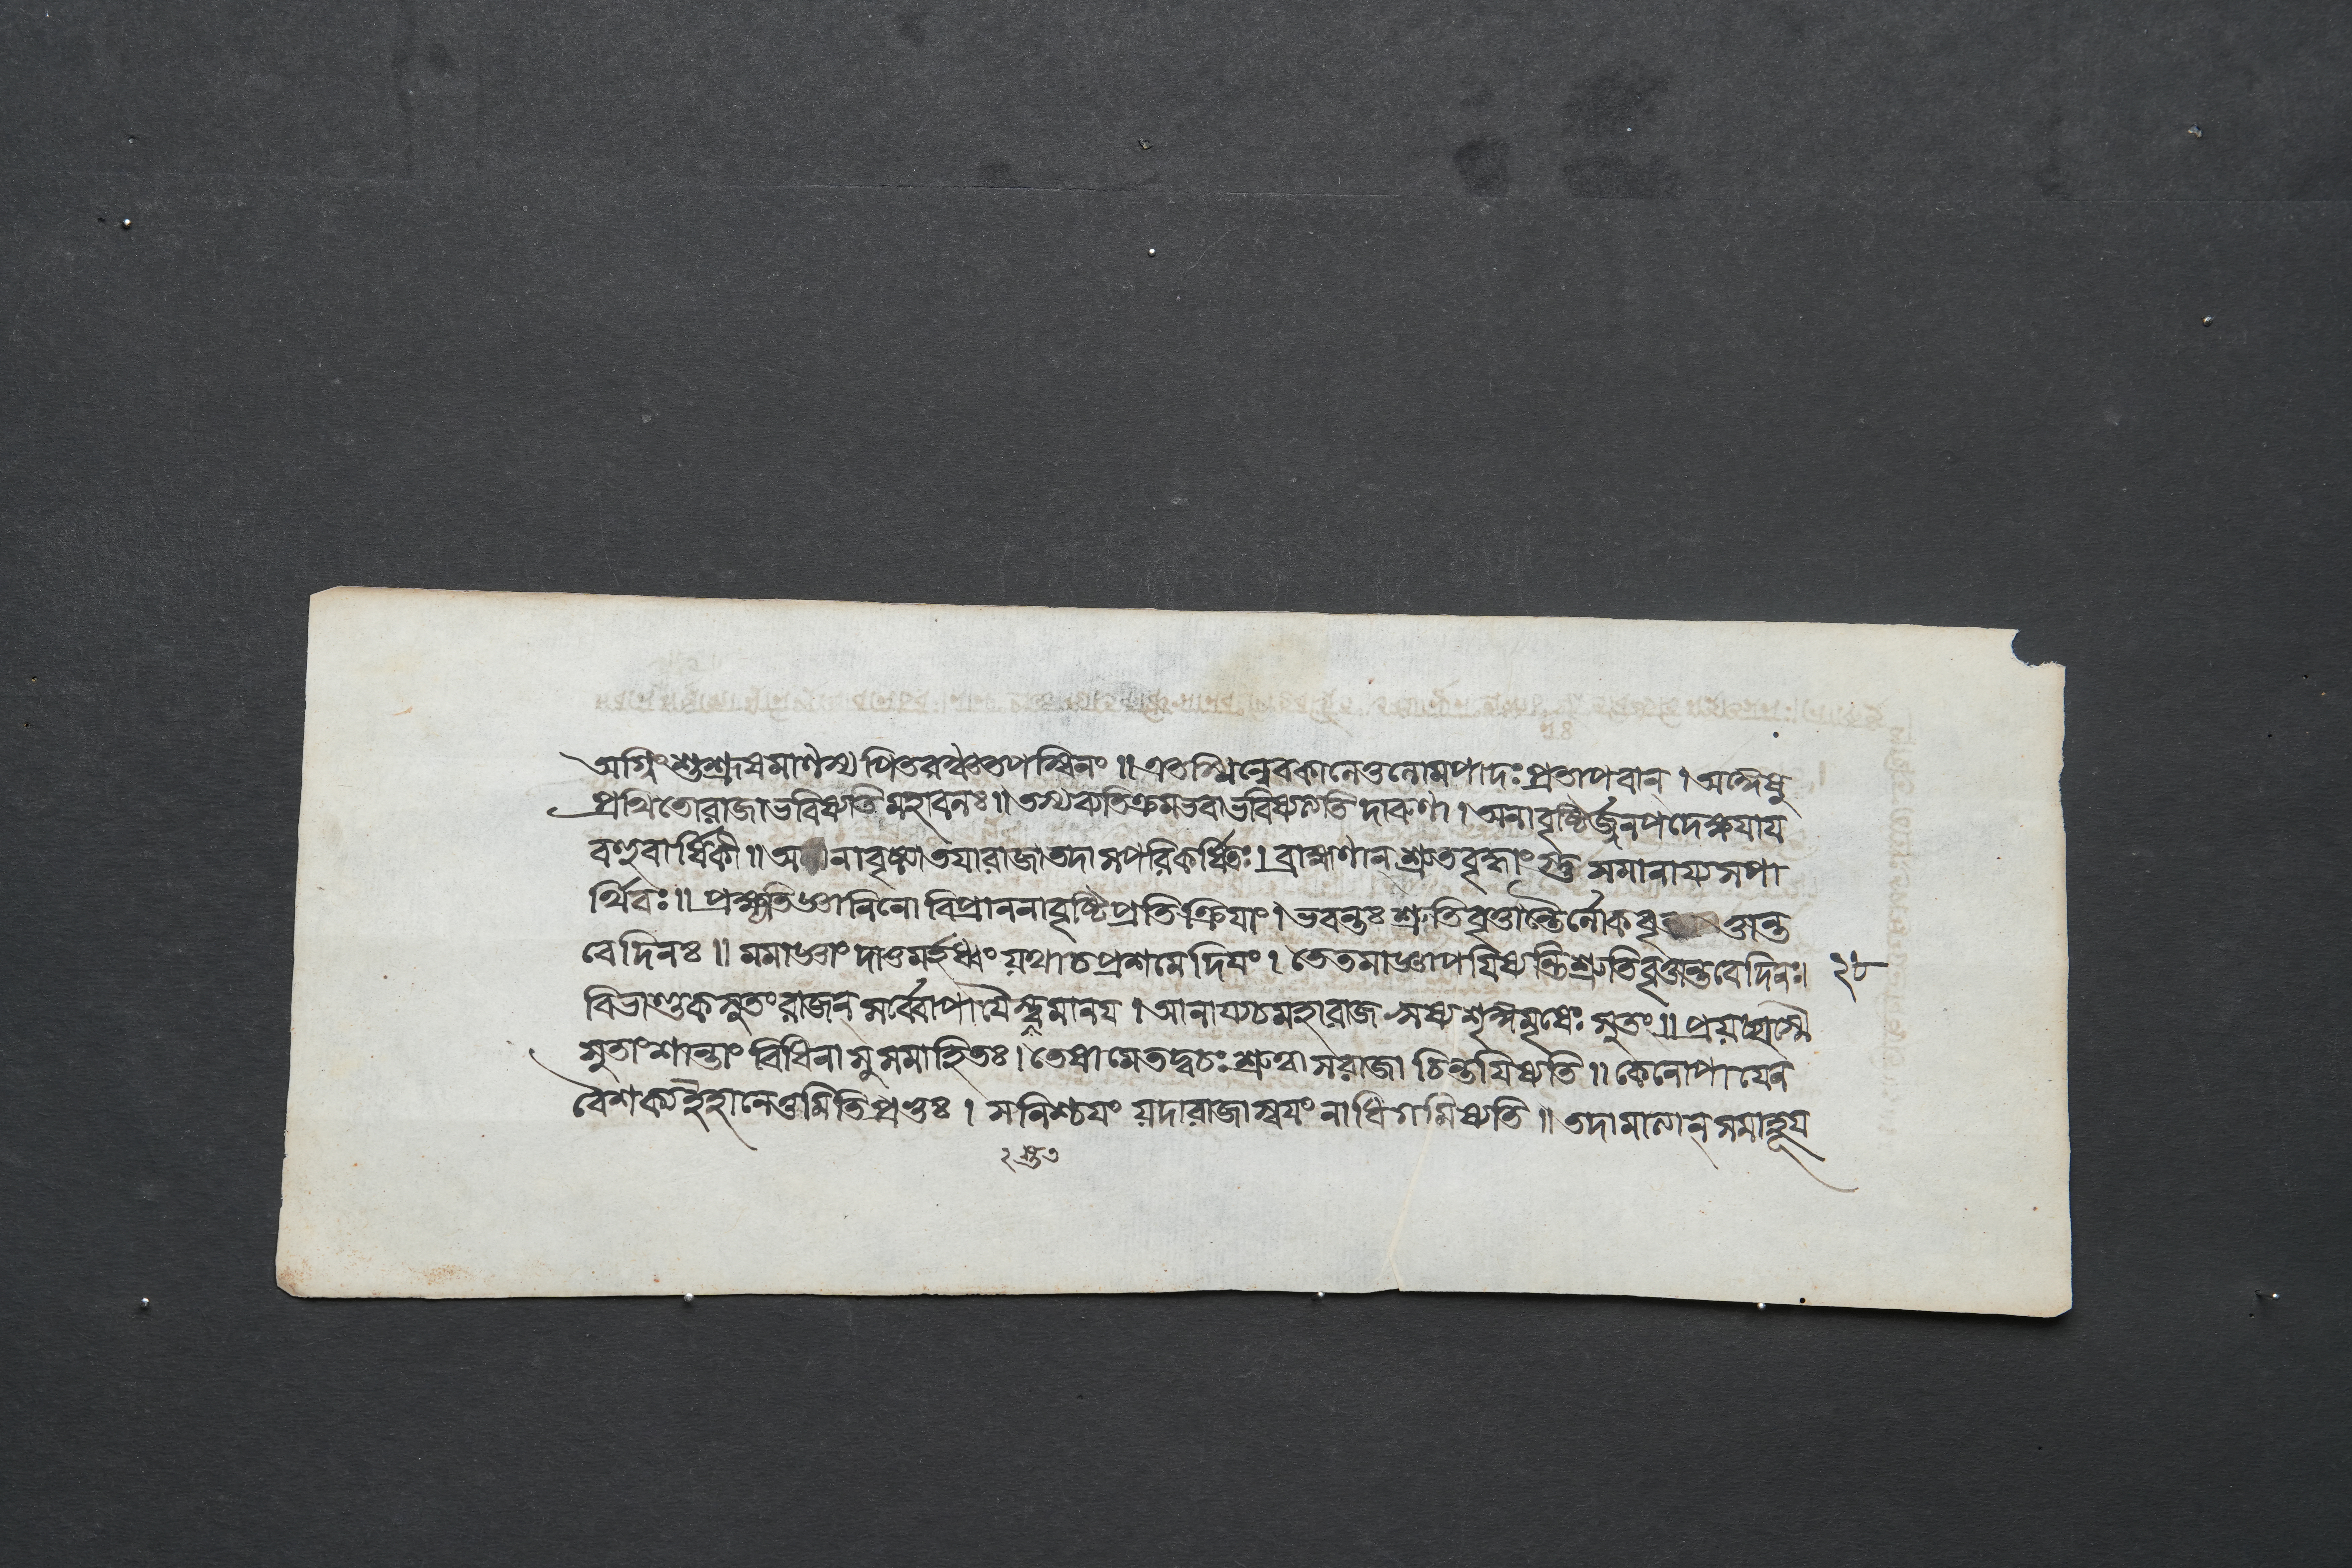 অগ্নিং শুশ্রূষমাণস্য পিতরঞ্চ তপস্বিনং ॥ এতস্মিন্নেব কালে তু লোমপাদঃ প্রতাপবান্ । অঙ্গেষু
প্রথিতো রাজা ভবিষ্যতি মহাবলঃ ॥ তস্য ব্যতিক্রমভবা ভবিষ্যত্যতি দারুণা । অনাবৃষ্টির্জ্জনপদে ক্ষয়ায়
বহুবার্ষিকী ॥ অনাবৃষ্ট্যা তয়া রাজা তদা স পরিকর্ষিতঃ । ব্রাহ্মণান্ শ্রুতবৃদ্ধাংস্তু সমানায্য স পা
র্থিবঃ ॥ প্রক্ষ্যতি জ্ঞানিনো বিপ্রাননাবৃষ্টিপ্রতিক্রিয়াং । ভবন্তঃ শ্রুতিবৃত্তান্তৈর্লোকবৃত্তান্ত
বেদিনঃ ॥ মমাজ্ঞাং দাতুমর্হধ্বং যথা চ প্রশমেদিয়ং । তে তমাজ্ঞাপয়িষ্যন্তি শ্রুতিবৃত্তান্তবেদিনঃ । ২৮
বিভাণ্ডকসুতং রাজন্ সর্ব্বোপায়ৈস্ত্বমানয় । আনায্য চ মহারাজ ঋষ্যশৃঙ্গমৃষেঃ সুতং ॥ প্রযচ্ছাস্মৈ
সুতাং শান্তাং বিধিনা সুসমাহিতঃ । তেষামেতদ্বচঃ শ্রুত্বা স রাজা চিন্তয়িষ্যতি ॥ কেনোপায়েন
বৈ শক্য ইহানেতুমিতি প্রভুঃ । স নিশ্চয়ং যদা রাজা স্বয়ং নাধিগমিষ্যতি ॥ তদামাত্যান্ সমাহূয়